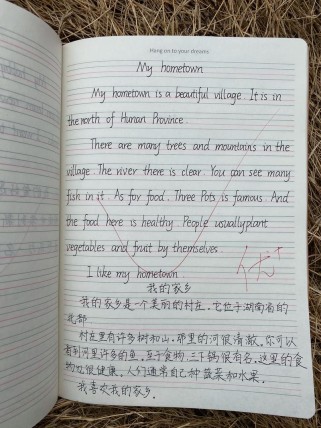 Hang on to your dreams
My hometown
My hometown is a beautiful village. It is in
the north of Hunan Province.
There are many trees and mountains in the
village. The river there is clear. You can see many
fish in it. As for food. Three Pots is famous. And
the food here is healthy. People usually plant
vegetables and fruit by themselves.
I like my hometown.
优+
我的家乡
我的家乡是一个美丽的村庄。它位于湖南省的
北部
村庄里有许多树和山。那里的河很清澈。你可以
看到河里许多的鱼。至于食物,三下锅很有名。这里的食
物也很健康。人们通常自己种蔬菜和水果。
我喜欢我的家乡。